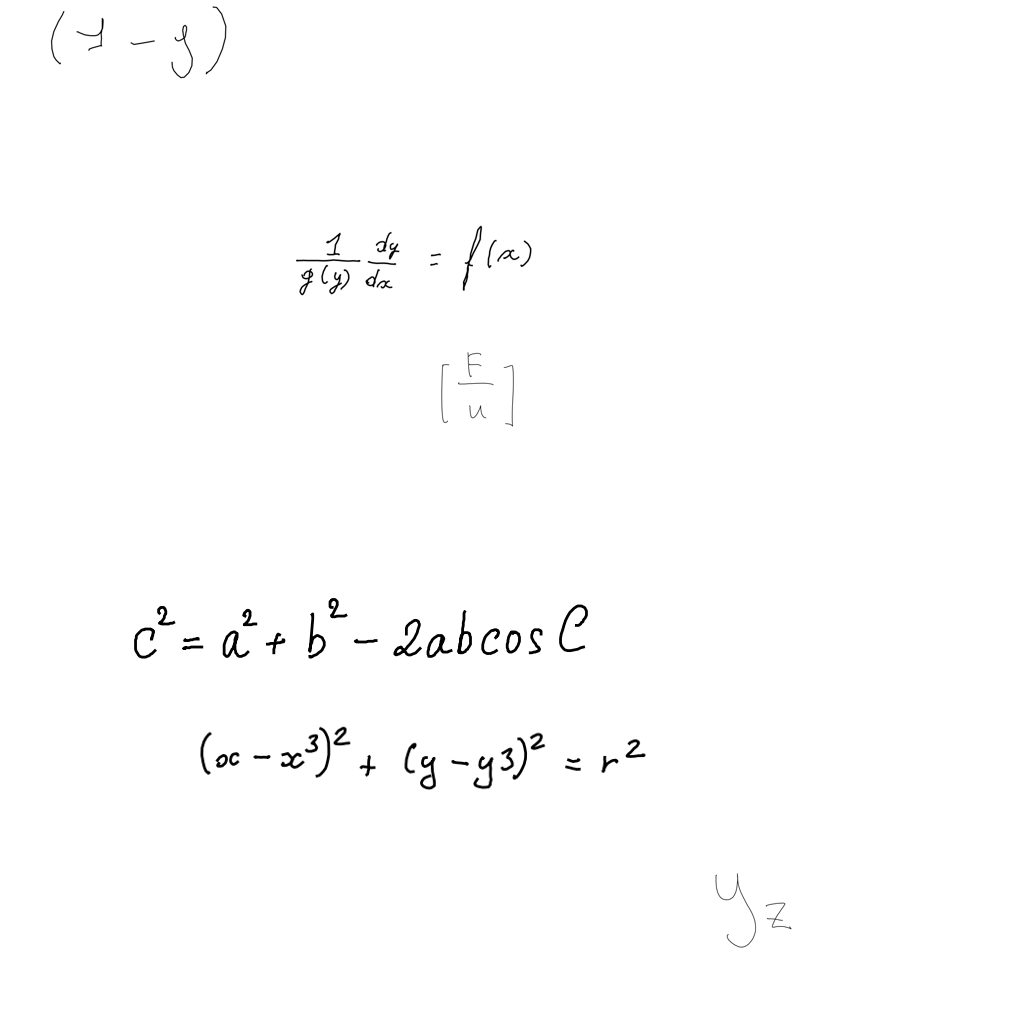 (1 - y)
\frac{1}{g(y)} \frac{dy}{dx} = f(x)
[\frac{F}{u}]
c^2 = a^2 + b^2 - 2abcosC
(x - x^3)^2 + (y - y3)^2 = r^2
y_z